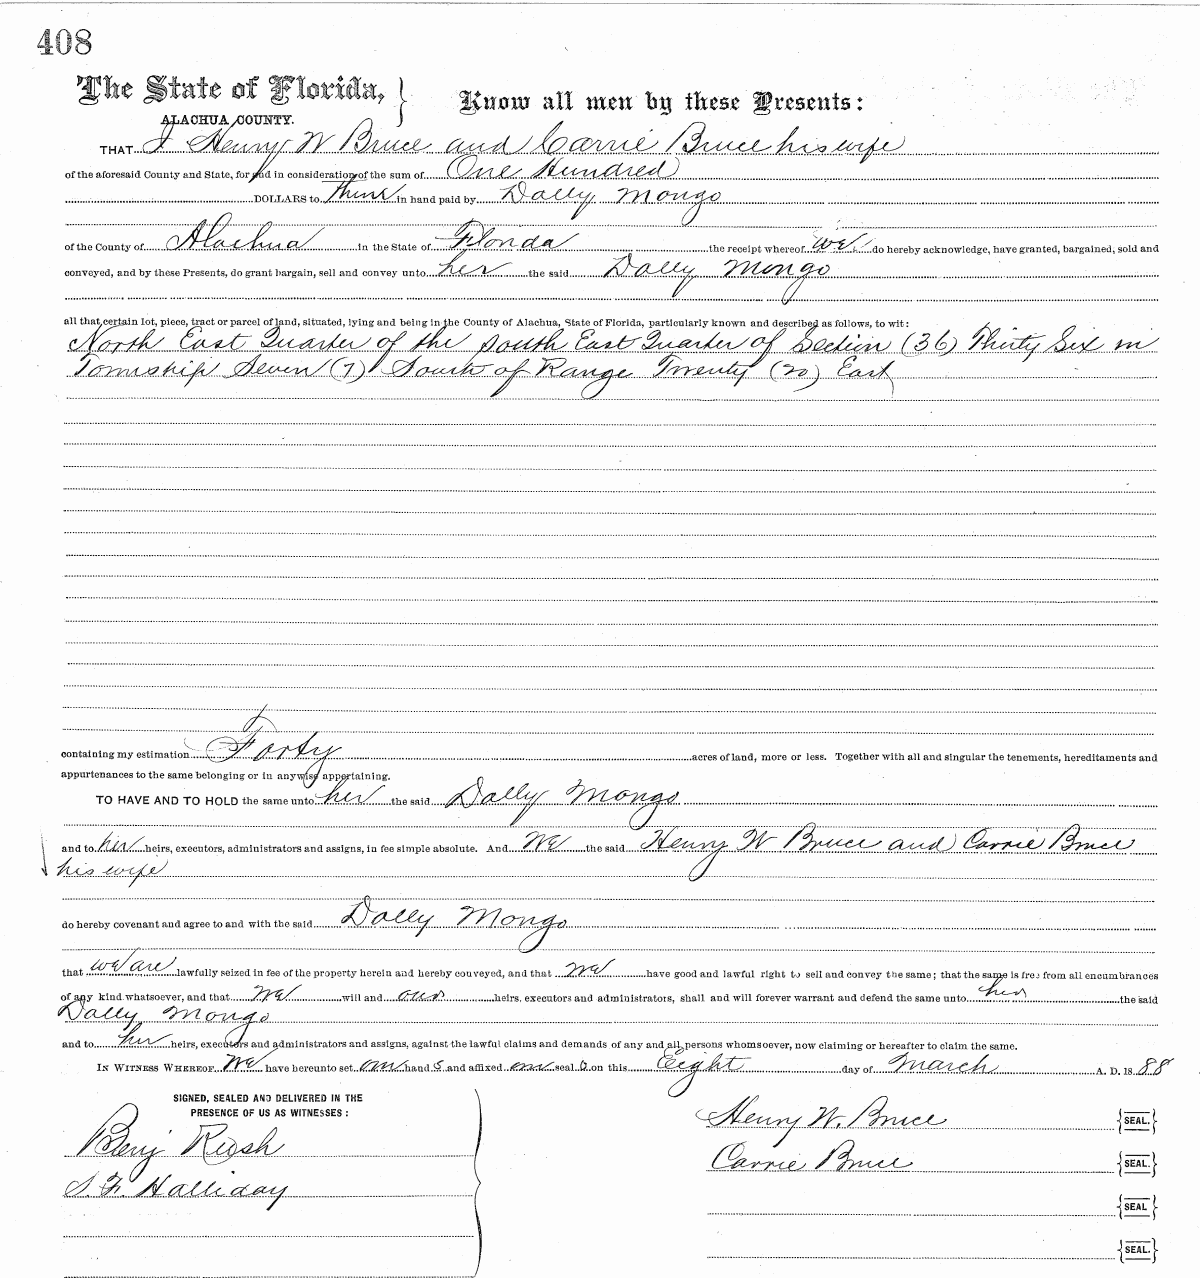 408
The State of Florida,
ALACHUA COUNTY.
Know all men by these Presents:
THAT I Henry W Bruce and Carrie Bruce his wife
of the aforesaid County and State, for and in consideration of the sum of One Hundred
DOLLARS to in hand paid by Dolly Mongo
of the County of Alachua in the State of Florida the receipt whereof we do hereby acknowledge, have granted, bargained, sold and
conveyed, and by these Presents, do grant bargain, sell and convey unto her the said Dolly Mongo
all that certain lot, piece, tract or parcel of land, situated, lying and being in the County of Alachua, State of Florida, particularly known and described as follows, to wit:
North East Quarter of the South East Quarter of Section (36) Thirty Six in
Township Seven (7) South of Range Twenty (20) East
containing my estimation Forty acres of land, more or less. Together with all and singular the tenements, hereditaments and
appurtenances to the same belonging or in anywise appertaining.
TO HAVE AND TO HOLD the same unto her the said Dolly Mongo
and to her heirs, executors, administrators and assigns, in fee simple absolute. And We the said Henry W Bruce and Carrie Bruce
his wife
do hereby covenant and agree to and with the said Dolly Mongo
that we are lawfully seized in fee of the property herein and hereby conveyed, and that we have good and lawful right to sell and convey the same; that the same is free from all encumbrances
of any kind whatsoever, and that we will and our heirs, executors and administrators, shall and will forever warrant and defend the same unto her the said
Dolly Mongo
and to her heirs, executors and administrators and assigns, against the lawful claims and demands of any and all persons whomsoever, now claiming or hereafter to claim the same.
IN WITNESS WHEREOF We have hereunto set our hand s and affixed our seal s on this Eight day of March A. D. 18 88
SIGNED, SEALED AND DELIVERED IN THE
PRESENCE OF US AS WITNESSES:
Benj Rush
S. F. Halliday
Henry W. Bruce {SEAL.}
Carrie Bruce {SEAL.}
{SEAL}
{SEAL.}